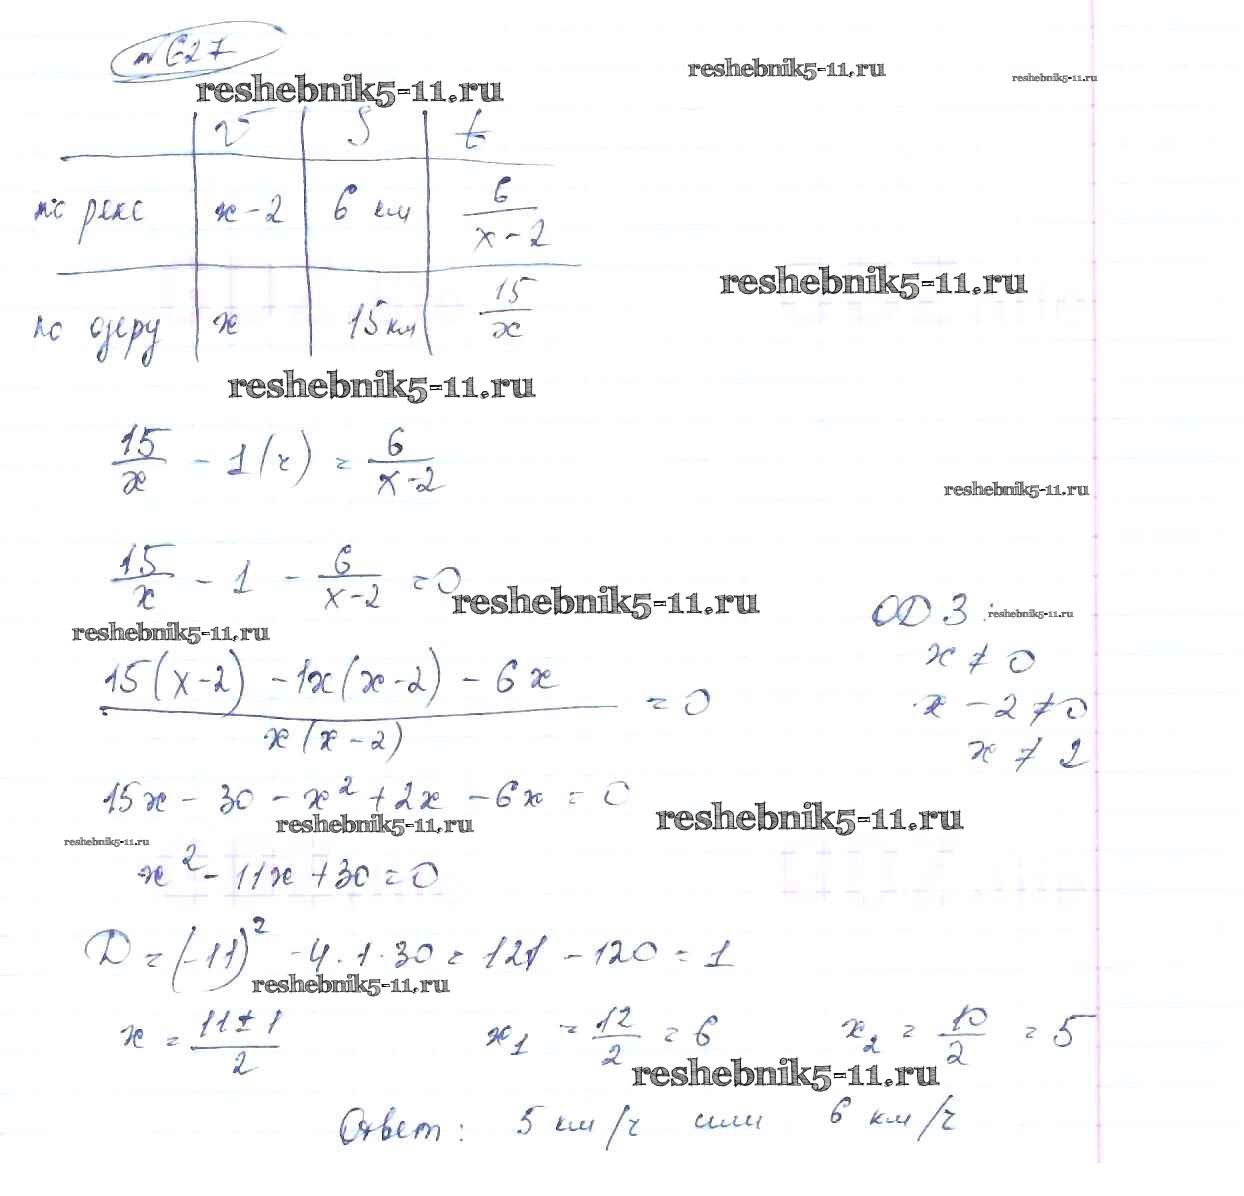 №627
reshebnik5-11.ru
reshebnik5-11.ru
reshebnik5-11.ru
V S t
по реке x-2 6 км 6/(x-2)
reshebnik5-11.ru
по озеру x 15 км 15/x
reshebnik5-11.ru
15/x - 1(ч) = 6/(x-2)
reshebnik5-11.ru
15/x - 1 - 6/(x-2) = 0
reshebnik5-11.ru
ОДЗ:
reshebnik5-11.ru
reshebnik5-11.ru
x ≠ 0
(15(x-2) - 1x(x-2) - 6x)/(x(x-2)) = 0
x - 2 ≠ 0
x ≠ 2
15x - 30 - x² + 2x - 6x = 0
reshebnik5-11.ru
reshebnik5-11.ru
reshebnik5-11.ru
x² - 11x + 30 = 0
D = (-11)² - 4·1·30 = 121 - 120 = 1
reshebnik5-11.ru
x = (11±1)/2 x₁ = 12/2 = 6 x₂ = 10/2 = 5
reshebnik5-11.ru
Ответ: 5 км/ч или 6 км/ч